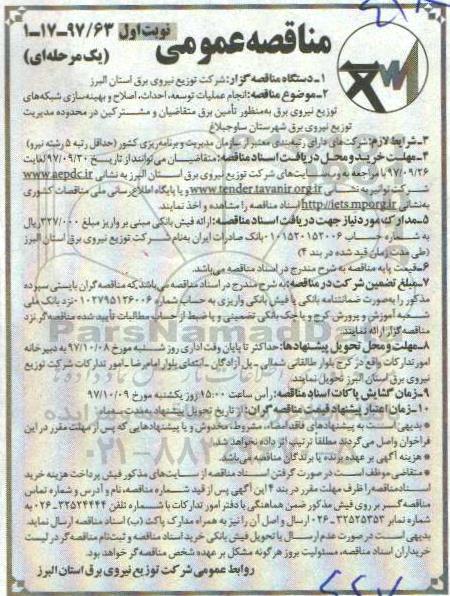 مناقصه عمومی
نوبت اول ۹۷/۶۳-۱۷-۱
(یک مرحله‌ای)
۱-دستگاه مناقصه گزار: شرکت توزیع نیروی برق استان البرز
۲-موضوع مناقصه: انجام عملیات توسعه، احداث، اصلاح و بهینه‌سازی شبکه‌های
توزیع نیروی برق به‌منظور تأمین برق متقاضیان و مشترکین در محدوده مدیریت
توزیع نیروی برق شهرستان ساوجبلاغ
۳-شرایط لازم: شرکت‌های دارای رتبه‌بندی معتبر از سازمان مدیریت و برنامه‌ریزی کشور (حداقل رتبه ۵ رشته نیرو)
۴-مهلت خرید و محل دریافت اسناد مناقصه: متقاضیان می‌توانند از تاریخ ۹۷/۰۹/۲۰ لغایت
۹۷/۰۹/۲۶ با مراجعه به وب‌سایت‌های شرکت توزیع نیروی برق استان البرز به نشانی www.aepdc.ir
شرکت توانیر به نشانی www.tender.tavanir.org.ir و یا پایگاه اطلاع‌رسانی ملی مناقصات کشوری
به‌نشانی http://iets.mporg.ir اسناد مناقصه را مشاهده و اخذ نمایند.
۵-مدارک مورد نیاز جهت دریافت اسناد مناقصه: ارائه فیش بانکی مبنی بر واریز مبلغ ۳۲۷/۰۰۰ ریال
به شماره حساب ۰۱۰۱۵۲۰۱۵۲۰۰۶ بانک صادرات ایران به‌نام شرکت توزیع نیروی برق استان البرز
(طی مدت زمان قید شده در بند ۴)
۶-قیمت پایه مناقصه به شرح مندرج در اسناد مناقصه می‌باشد.
۷-مبلغ تضمین شرکت در مناقصه: به شرح مندرج در اسناد مناقصه می‌باشد که مناقصه گران بایستی سپرده
مذکور را به‌صورت ضمانتنامه بانکی یا فیش بانکی واریزی به حساب شماره ۰۱۰۲۷۹۵۱۳۶۰۰۶ نزد بانک ملی
شعبه آموزش و پرورش کرج و یا چک بانکی تضمینی و یا ضبط از حساب مطالبات تأیید شده مناقصه‌گر نزد
مناقصه گزار ارائه نمایند.
۸-مهلت و محل تحویل پیشنهادها: حداکثر تا پایان وقت اداری روز شنبه مورخ ۹۷/۱۰/۰۸ به دبیرخانه
امور تدارکات واقع در کرج بلوار طالقانی شمالی - پل آزادگان - انتهای بلوار امام رضا - امور تدارکات شرکت توزیع
نیروی برق استان البرز تحویل نمایند.
۹-زمان گشایش پاکات اسناد مناقصه: رأس ساعت ۱۵:۰۰ روز یکشنبه مورخ ۹۷/۱۰/۰۹
۱۰-زمان اعتبار پیشنهاد قیمت مناقصه گران: از تاریخ تحویل پیشنهاد به‌مدت سه ماه
* بدیهی است به پیشنهادهای فاقد امضاء، مشروط، مخدوش و یا پیشنهادهایی که پس از مهلت مقرر در این
فراخوان واصل می‌گردند مطلقا ترتیب اثر داده نخواهد شد.
* هزینه آگهی بر عهده برنده یا برندگان مناقصه می‌باشد.
* متقاضی موظف است در صورت گرفتن اسناد مناقصه از سایت‌های مذکور فیش پرداخت هزینه خرید
اسناد مناقصه را ظرف مهلت مقرر در بند ۴ این آگهی پس از قید شماره مناقصه، نام و آدرس و شماره تماس
مناقصه گر بر روی فیش مذکور ضمن هماهنگی با دفتر امور تدارکات با شماره تلفن ۳۲۵۲۴۴۴۴-۰۲۶ به
شماره نمابر ۳۲۵۲۵۳۵۲-۰۲۶ ارسال و اصل آن را نیز به همراه مدارک پاکت (ب) اسناد مناقصه ارسال نماید.
بدیهی است در صورت عدم ارسال یا تحویل فیش بانکی خرید اسناد مناقصه و ثبت‌نام مناقصه گر در لیست
خریداران اسناد مناقصه، مسئولیت بروز هرگونه مشکل بر عهده شخص مناقصه‌گر خواهد بود.
روابط عمومی شرکت توزیع نیروی برق استان البرز